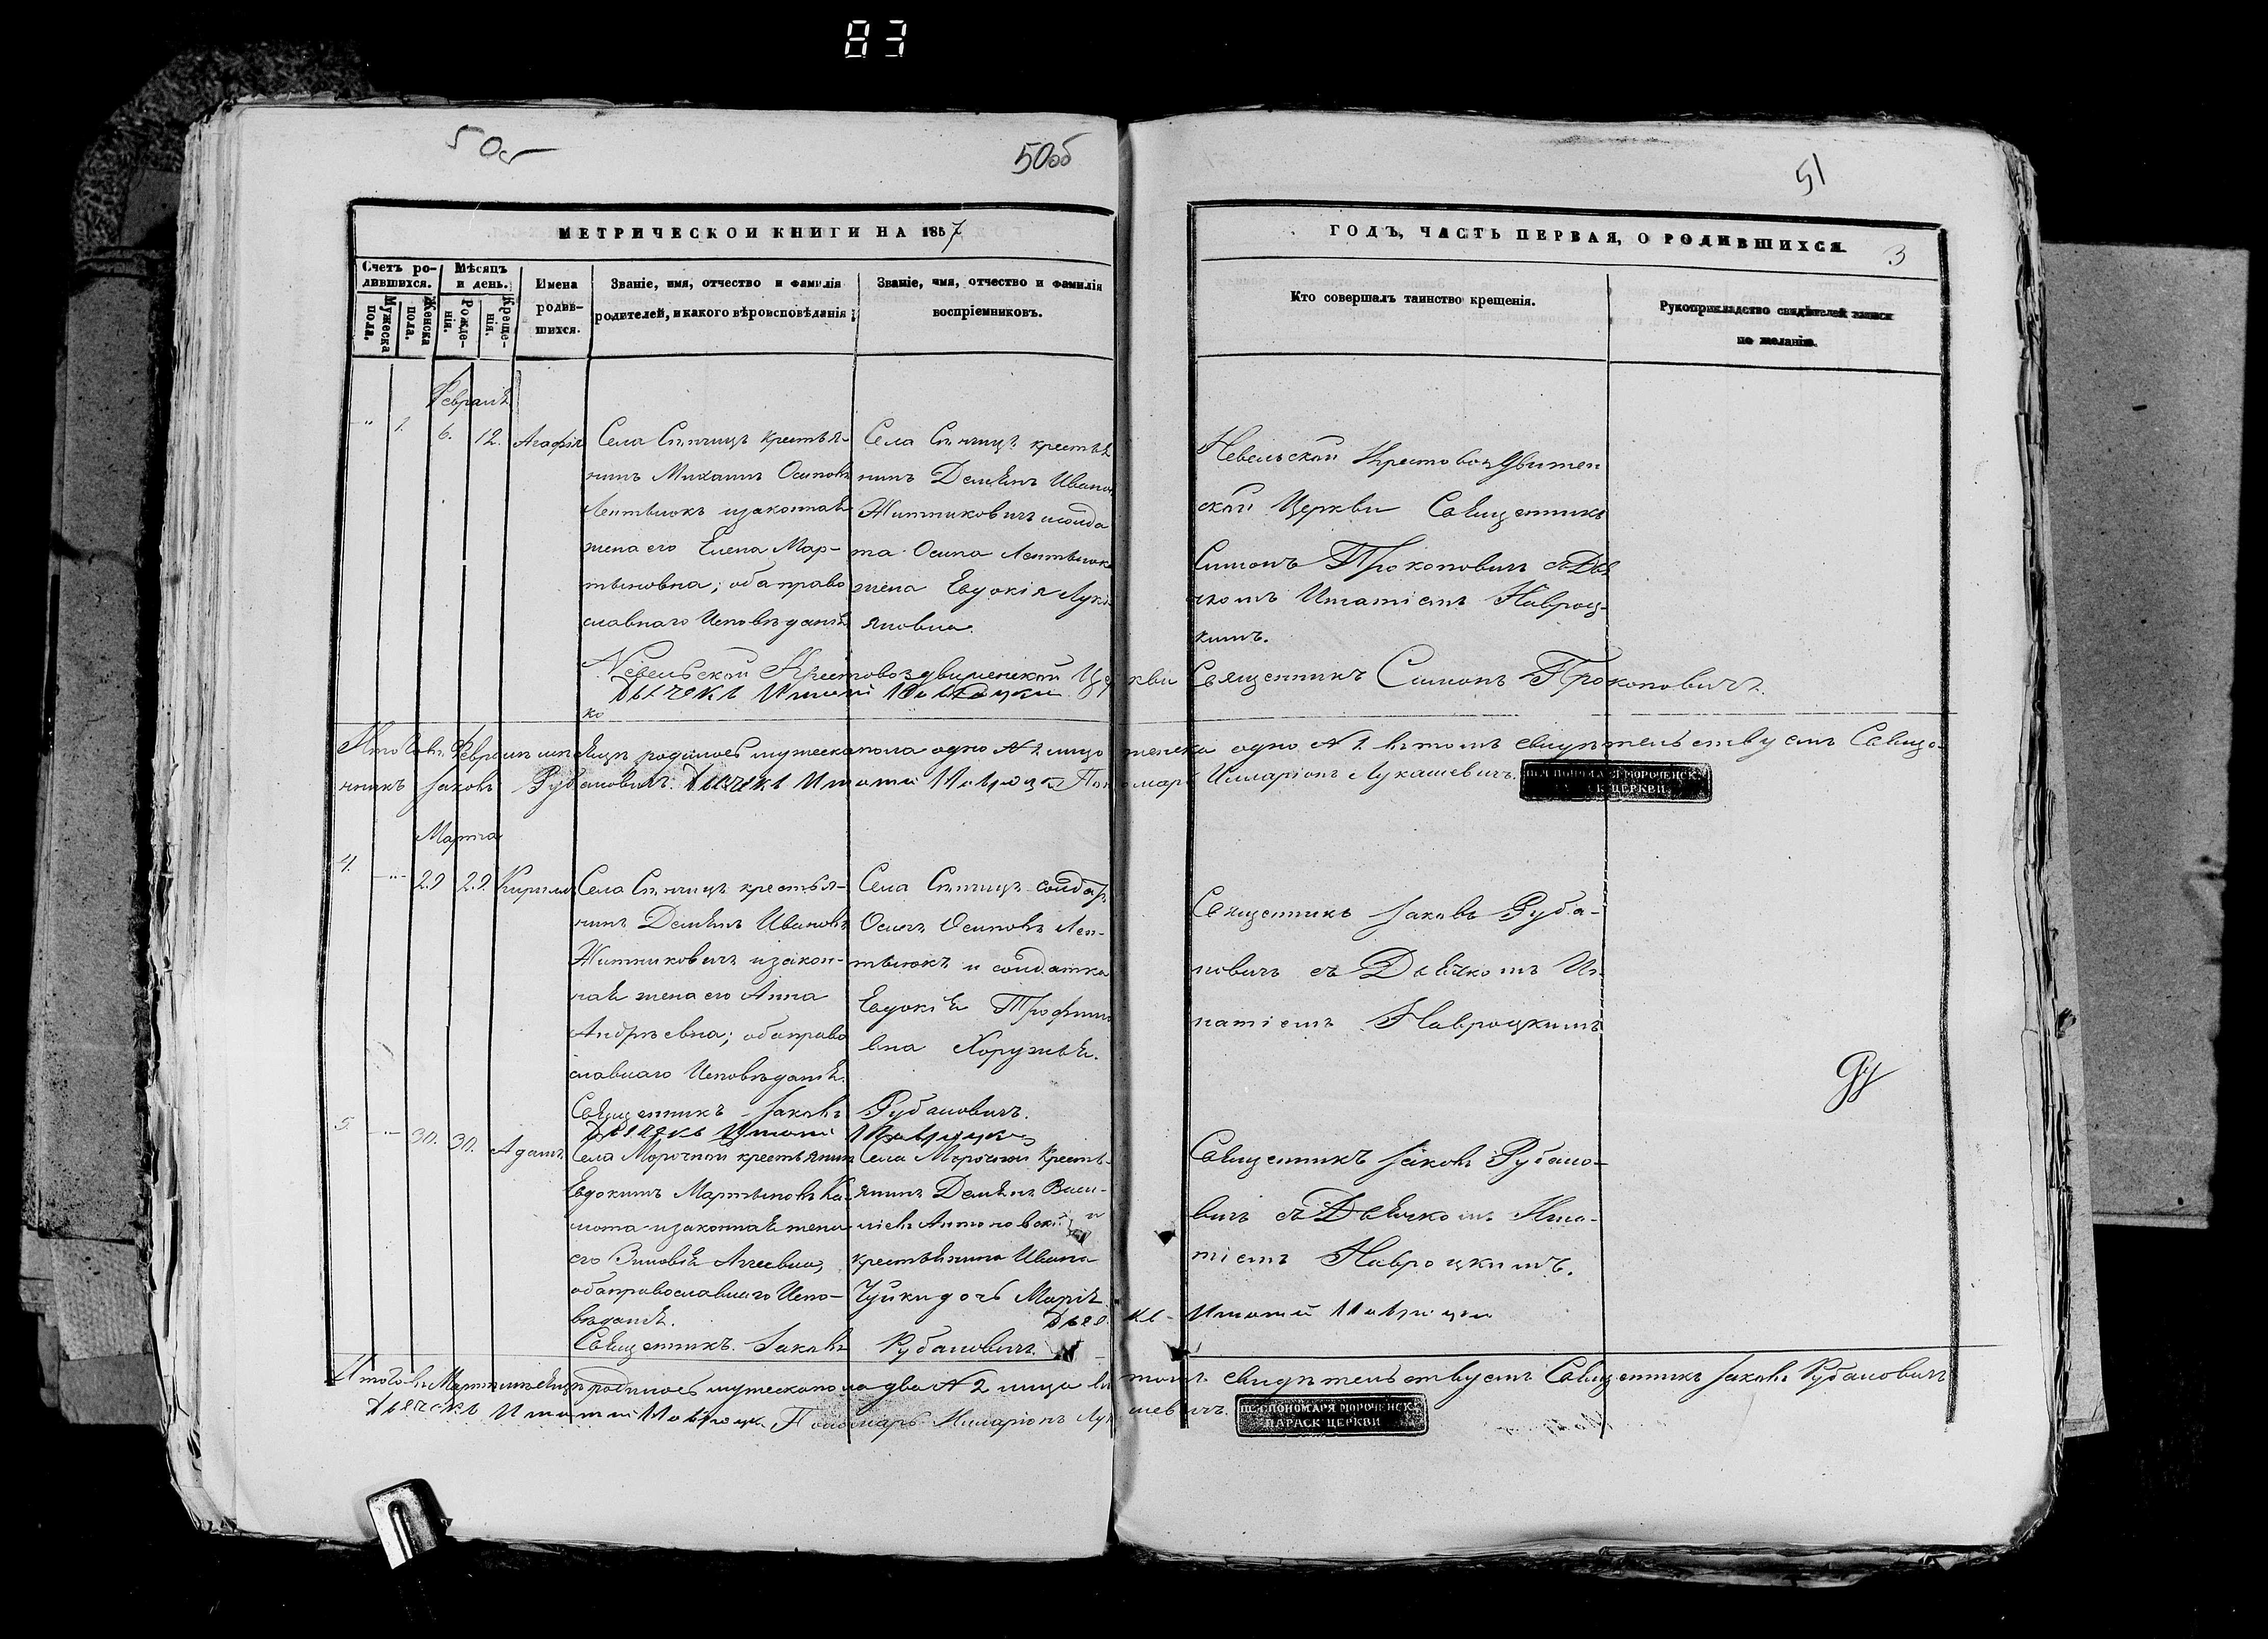 83
50об
50об
51
МЕТРИЧЕСКОЙ КНИГИ НА 1857
ГОДЪ, ЧАСТЬ ПЕРВАЯ, О РОДИВШИХСЯ.
3
Счетъ ро-
дившихся.
Мужеска
пола.
Женска
пола.
Мѣсяцъ
и день.
Рожде-
нія.
Креще-
нія.
Имена
родив-
шихся.
Званіе, имя, отчество и фамилія
родителей, и какого вѣроисповѣданія
Званіе, имя, отчество и фамилія
воспріемниковъ.
Кто совершалъ таинство крещенія.
Рукоприкладство свидѣтелей записи
по желанію.
Февраля
" 1. 6. 12. Агафія
Села Сѣнчицъ крестья-
нинъ Михаилъ Осиповъ
Лентьюкъ и законная
жена его Елена Мар-
тыновна; оба право
славнаго Исповѣданія
Села Сѣнчицъ крестья
нинъ Демьянъ Иванов
Житниковичъ и солда
та Осипа Лентьюка
жена Евдокія Луки
яновна.
Невельской Крестовоздвижен
ской Церкви Священникъ
Симонъ Прокоповичъ съ Дья
чкомъ Игнатіемъ Навроц-
кимъ.
Невельской Крестовоздвиженской Церкви Священникъ Симонъ Прокоповичъ.
Дьячекъ Игнатій Навроцкій
Итого въ Февралѣ мѣсяцѣ родилось мужеска пола одно № 1 лицо женска одно № 1 въ томъ свидѣтельствуемъ Свяще-
нникъ Іаковъ Рубановичъ. Дьячекъ Игнатій Навроцкій Пономарь Илларіонъ Лукашевичъ.
ПЕЧ ПОНОМАРЯ МОРОЧЕНСК.
ЦЕРКВИ
Марта
4. " 29 29. Кириллъ
Села Сѣнчицъ крестья-
нинъ Демьянъ Ивановъ
Житниковичъ и закон-
ная жена его Анна
Андреевна; оба право
славнаго Исповѣданія.
Села Сѣнчицъ солдатъ
Осипъ Осиповъ Лен-
тьюкъ и солдатка
Евдокія Трофимо
вна Хоружья.
Священникъ Іаковъ Руба-
новичъ съ Дьячкомъ Иг
натіемъ Навроцкимъ
Священникъ Іаковъ Рубановичъ.
Дьячекъ Игнатій Навроцкій
5. " 30. 30. Адамъ.
Села Морочной крестьянинъ
Евдокимъ Мартыновъ Ка-
лота и законная жена
его Зиновія Агеевна,
оба православнаго Испо-
вѣданія.
Села Морочной Кресть-
янинъ Демьянъ Васи-
ліевъ Антоновскій и
крестьянина Ивана
Чуйки дочь Марія
Священникъ Іаковъ Рубано-
вичъ съ Дьячкомъ Игна-
тіемъ Навроцкимъ.
Дьячекъ Игнатій Навроцкій
Священникъ Іаковъ Рубановичъ.
Итого въ Мартѣ мѣсяцѣ родилось мужеска пола два № 2 лица въ томъ свидѣтельствуемъ Священникъ Іаковъ Рубановичъ
Дьячекъ Игнатій Навроцкій Пономарь Илларіонъ Лукашевичъ.
ПЕЧ ПОНОМАРЯ МОРОЧЕНСК.
ПАРАСК ЦЕРКВИ